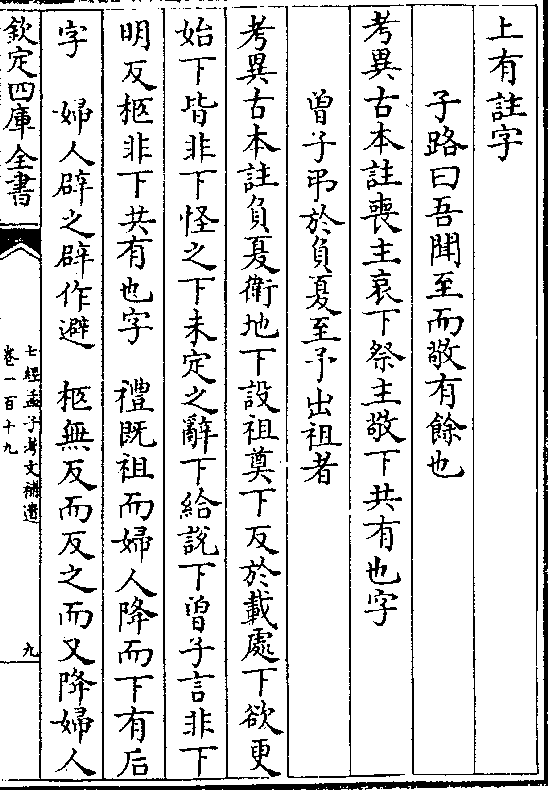 上有註字
子路曰吾聞至而敬有餘也
考異古本註喪主哀下祭主敬下共有也字
曾子弔於負夏至予出祖者
考異古本註負夏衛地下設祖奠下反於載處下欲更
始下皆非下怪之下未定之辭下給說下曽子言非下
明反柩非下共有也字　禮既祖而婦人降而下有后
字　婦人辟之辟作避　柩無反而反之而又降婦人
欽定四庫全書
七經孟子考文補遺
卷一百十九
九